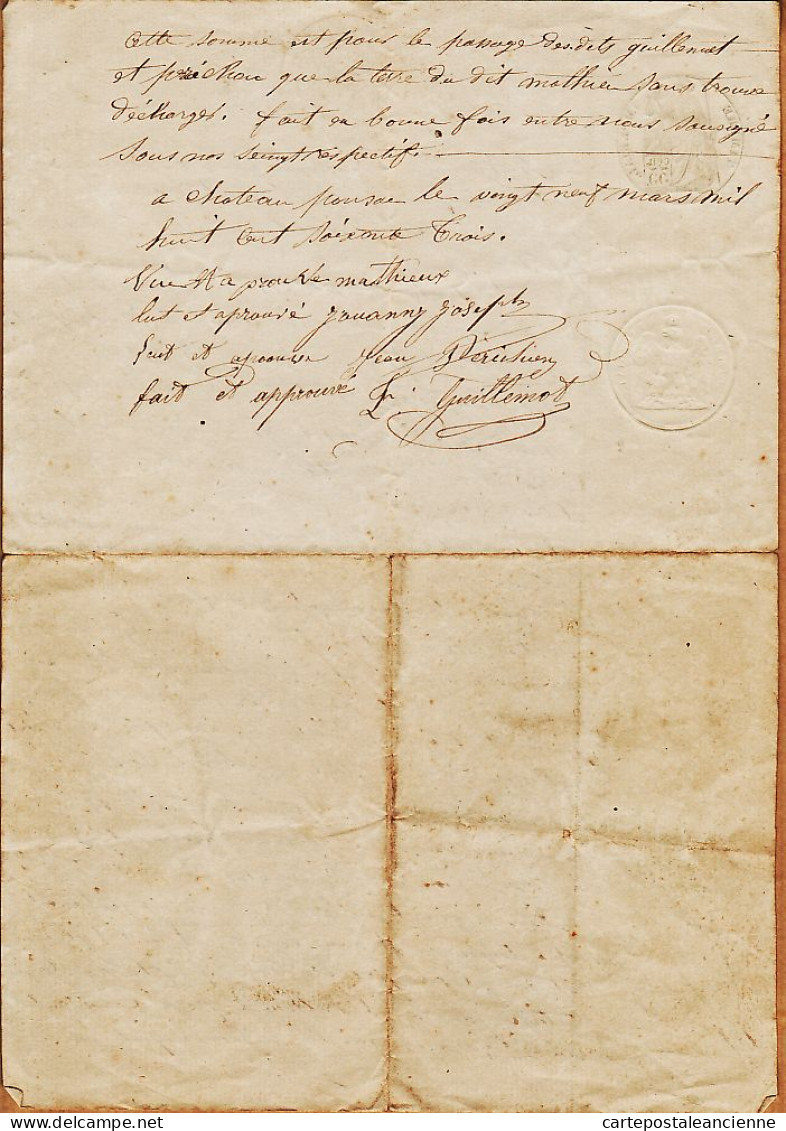 Cette somme est pour le passage des dits guillemot
et que la terre du dit mathieu sans trouve
déchargés. fait en bonne fois entre nous sousigné
sous nos seingt respectif.
a chateau ponsac le vingt neuf mars mil
huit cent soixante trois.
Vue et a prouvé mathieux
lut et aprouvé jouanny joseph
Lut et aprouve jean
fait et approuvé L. Guillemot
cartepostaleancienne